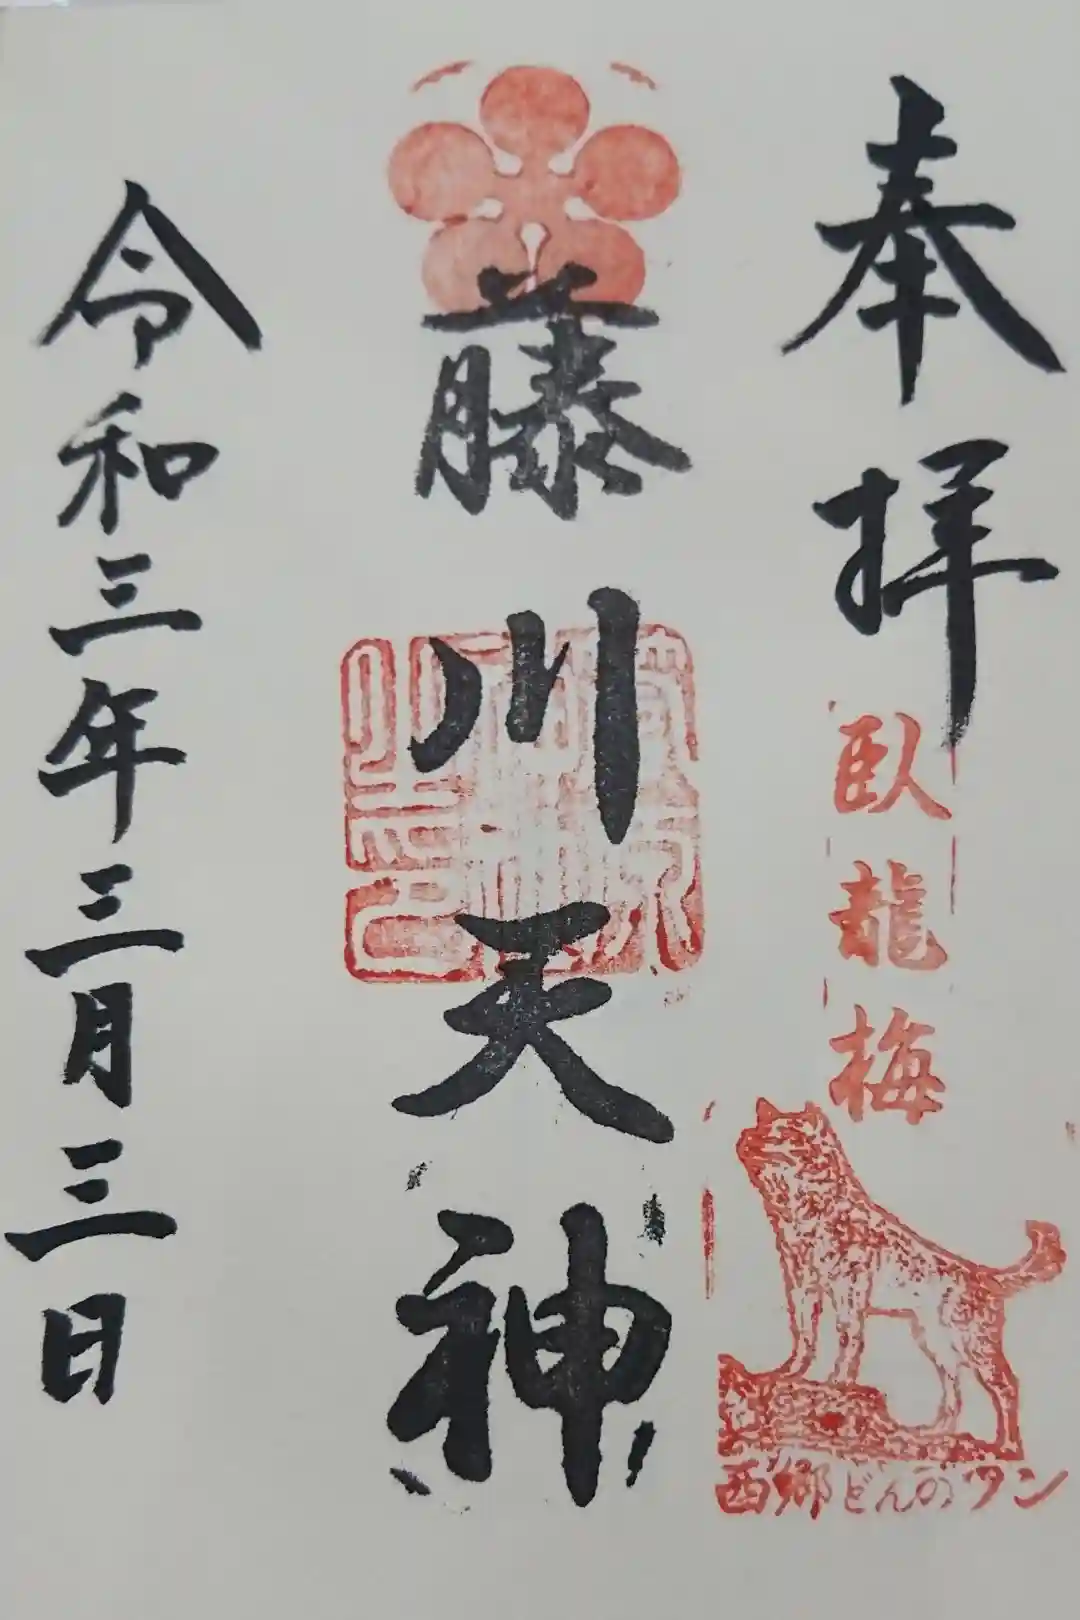 奉拝
臥龍梅
西郷どんのツン
藤川天神
令和三年三月三日